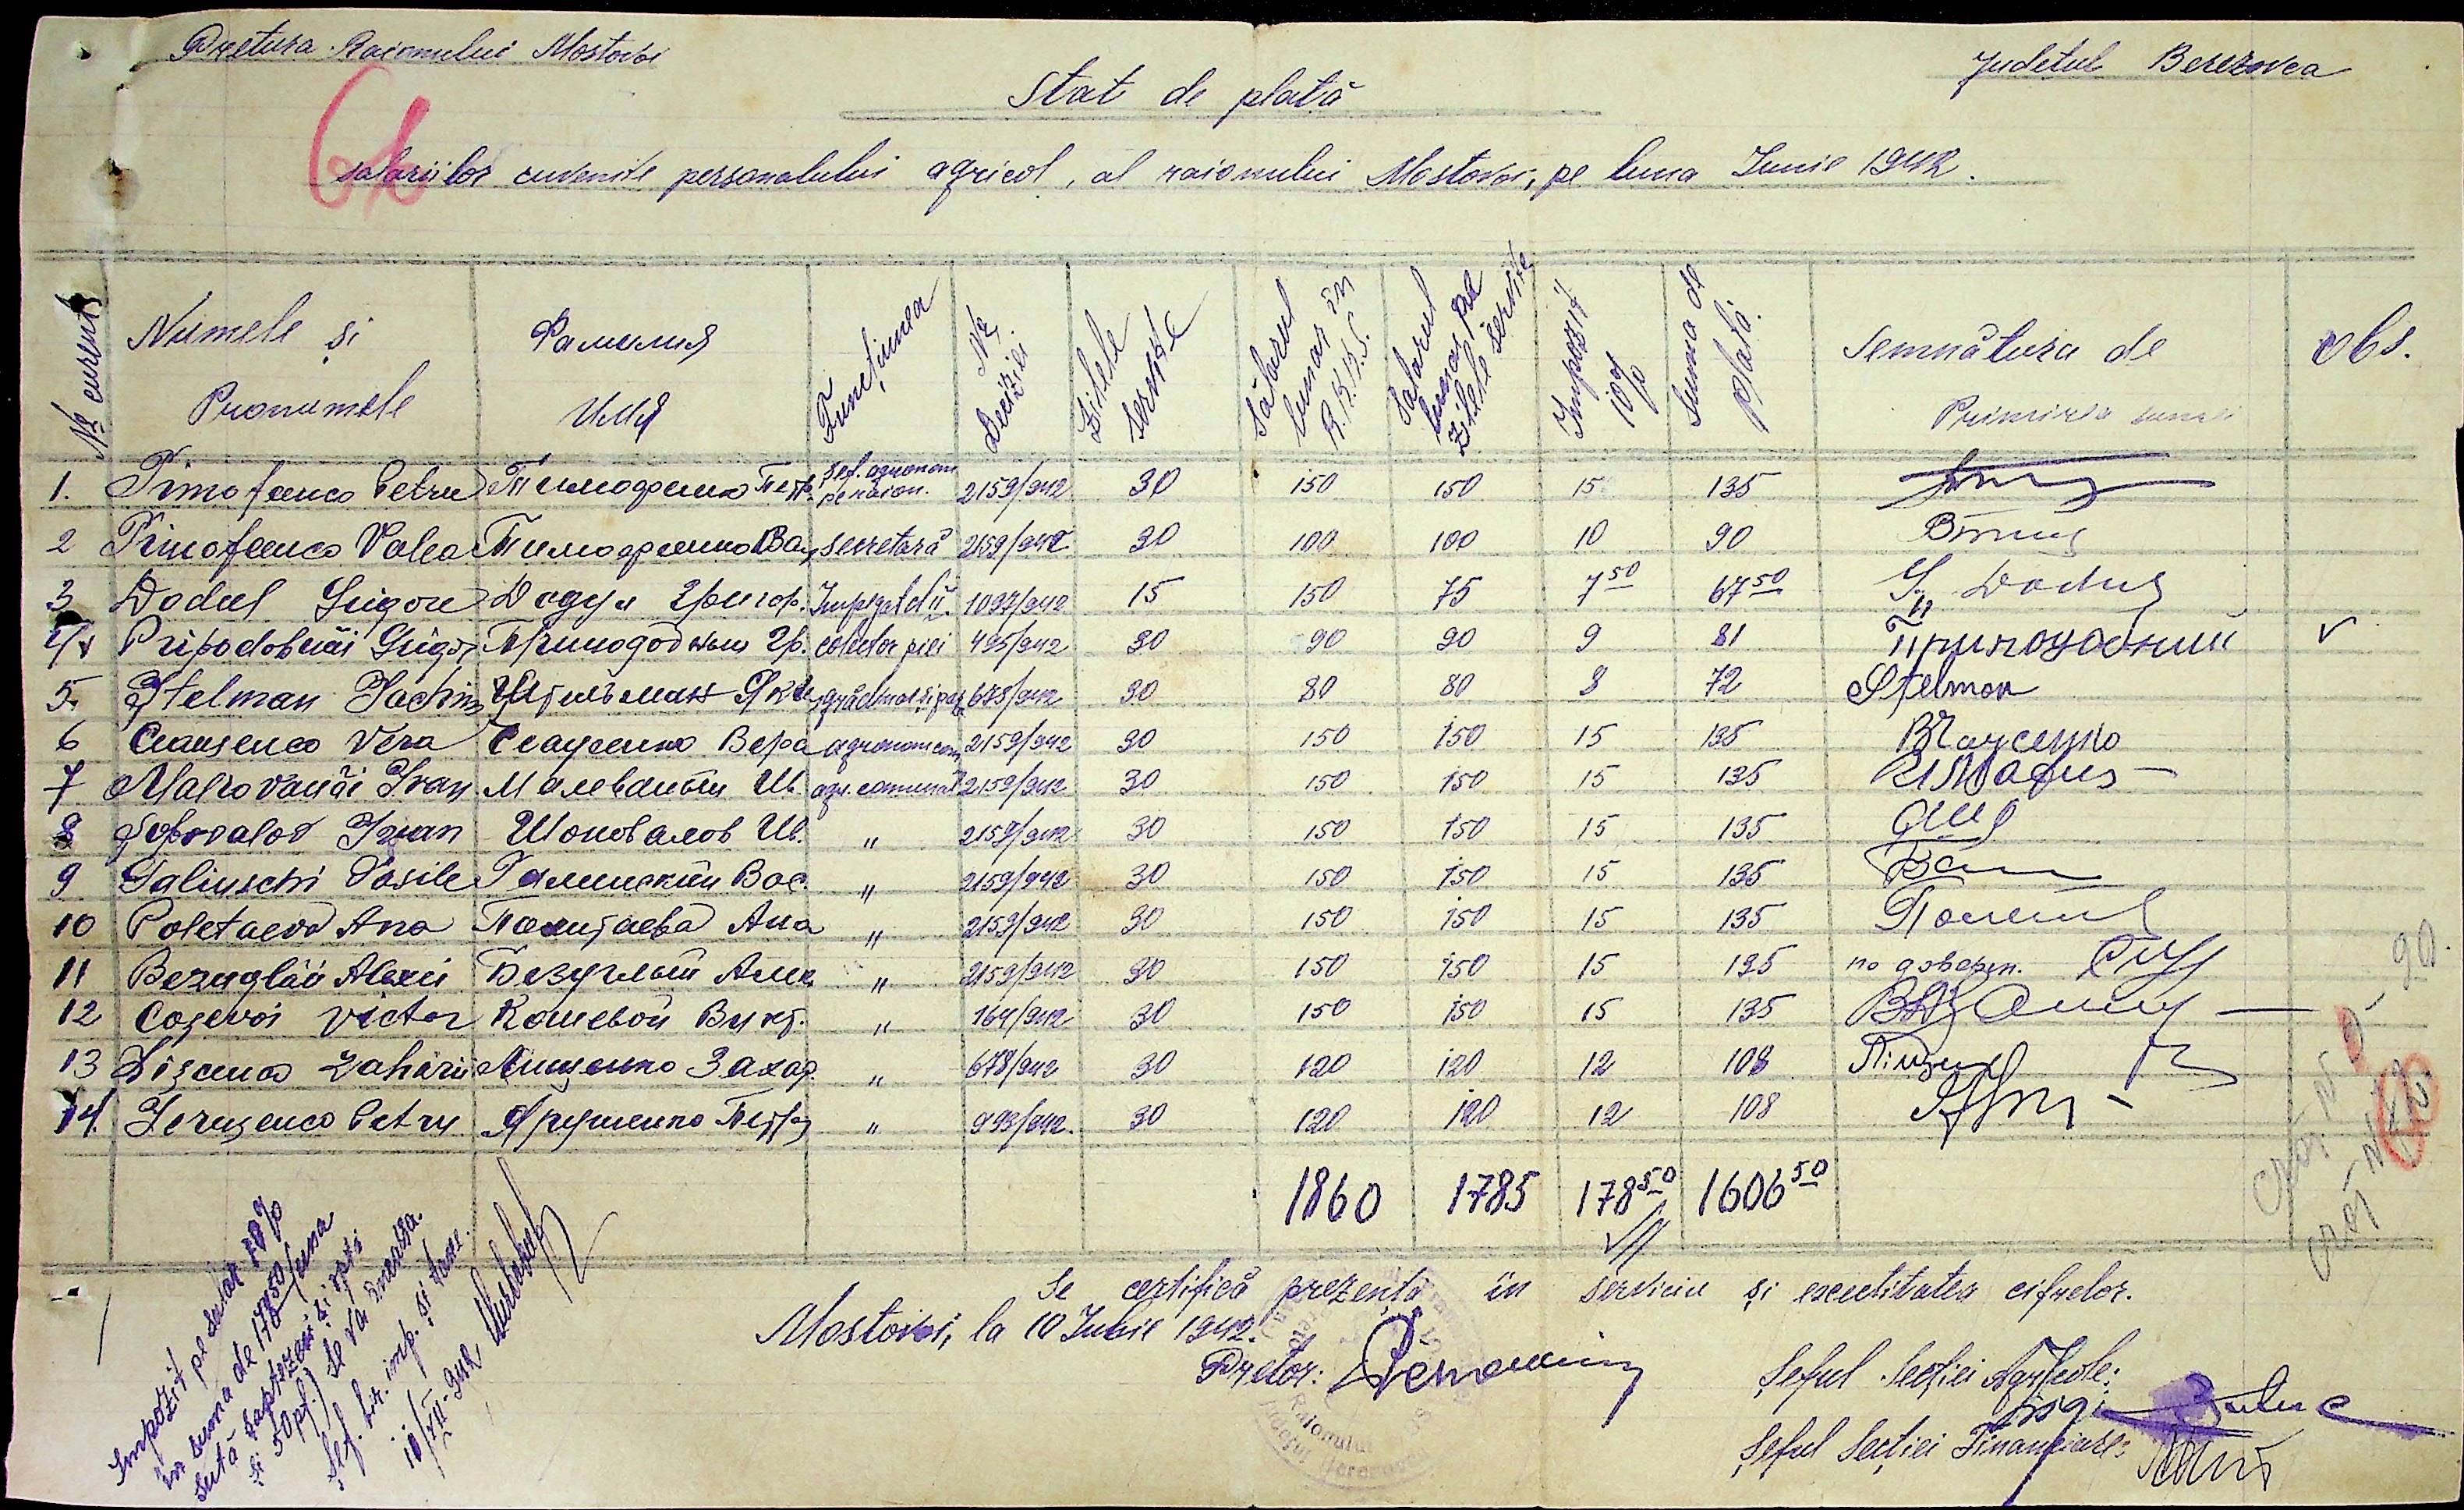 Pretura Raionului Mostovoi
Judetul Berezovca
Stat de plată
salariilor cuvenite personalului agricol, al raionului Mostovoi, pe luna Iunie 1942.
№ curent Numele și Pronumele Фамилия Имя Funcțiunea № Deciziei Zilele servite Sălarul lunar în R.K.K.S. Salarul lunar pe zilele servite Impozit 10% Suma de plată. Semnătura de Primirea sumei Obs.
1. Timofeenco Petru Тимофеенко Петр șef. agronom pe raion. 2159/942 30 150 150 15 135
2 Timofeenco Valea Тимофеенко Вал secretară 2159/942 30 100 100 10 90
3 Dodul Grigore Додул Григор. 1097/942 15 150 75 7 50 67 50 G. Dodul
4 Pripodobnâi Grigor Приподобный Гр. colector piei 495/942 30 90 90 9 81 Приподобний v
5. Ștelman Iachim Штельман Яким 678/942 30 80 80 8 72 Stelman
6 Ceaușenco Vera Чеаусенко Вера agronom com 2159/942 30 150 150 15 135
7 Malevanâi Ivan Малеваный Ив. agr. comunal 2159/942 30 150 150 15 135
8 Șopovalov Ivan Шоповалов Ив. " 2159/942 30 150 150 15 135
9 Galinschi Vasile Галинский Вас. " 2159/942 30 150 150 15 135
10 Poletaeva Ana Полетаева Ана " 2159/942 30 150 150 15 135
11 Bezuglâi Alexei Безуглый Алек " 2159/942 30 150 150 15 135 по доверен.
12 Coșevoi Victor Кошевой Викт. " 164/942 30 150 150 15 135
13 Lișenco Zaharii Лищенко Захар. " 678/942 30 120 120 12 108
14 Ierușenco Petru Ярушенко Петр " 993/942. 30 120 120 12 108
1860 1785 178 50 1606 50
Impozit pe salar 10%
în suma de 178 50 /una
sută șaptezeci și opt
și 50 pf./ se va încasa.
Șef. bir. imp. și taxe.
10/VII-942
Se certifică prezența în serviciu și exactitatea cifrelor.
Mostovoi, la 10 Iulie 1942.
Pretor:
Șeful Secției Agricole:
Șeful Secției Financiare:
Raionului
Județul Berezovca